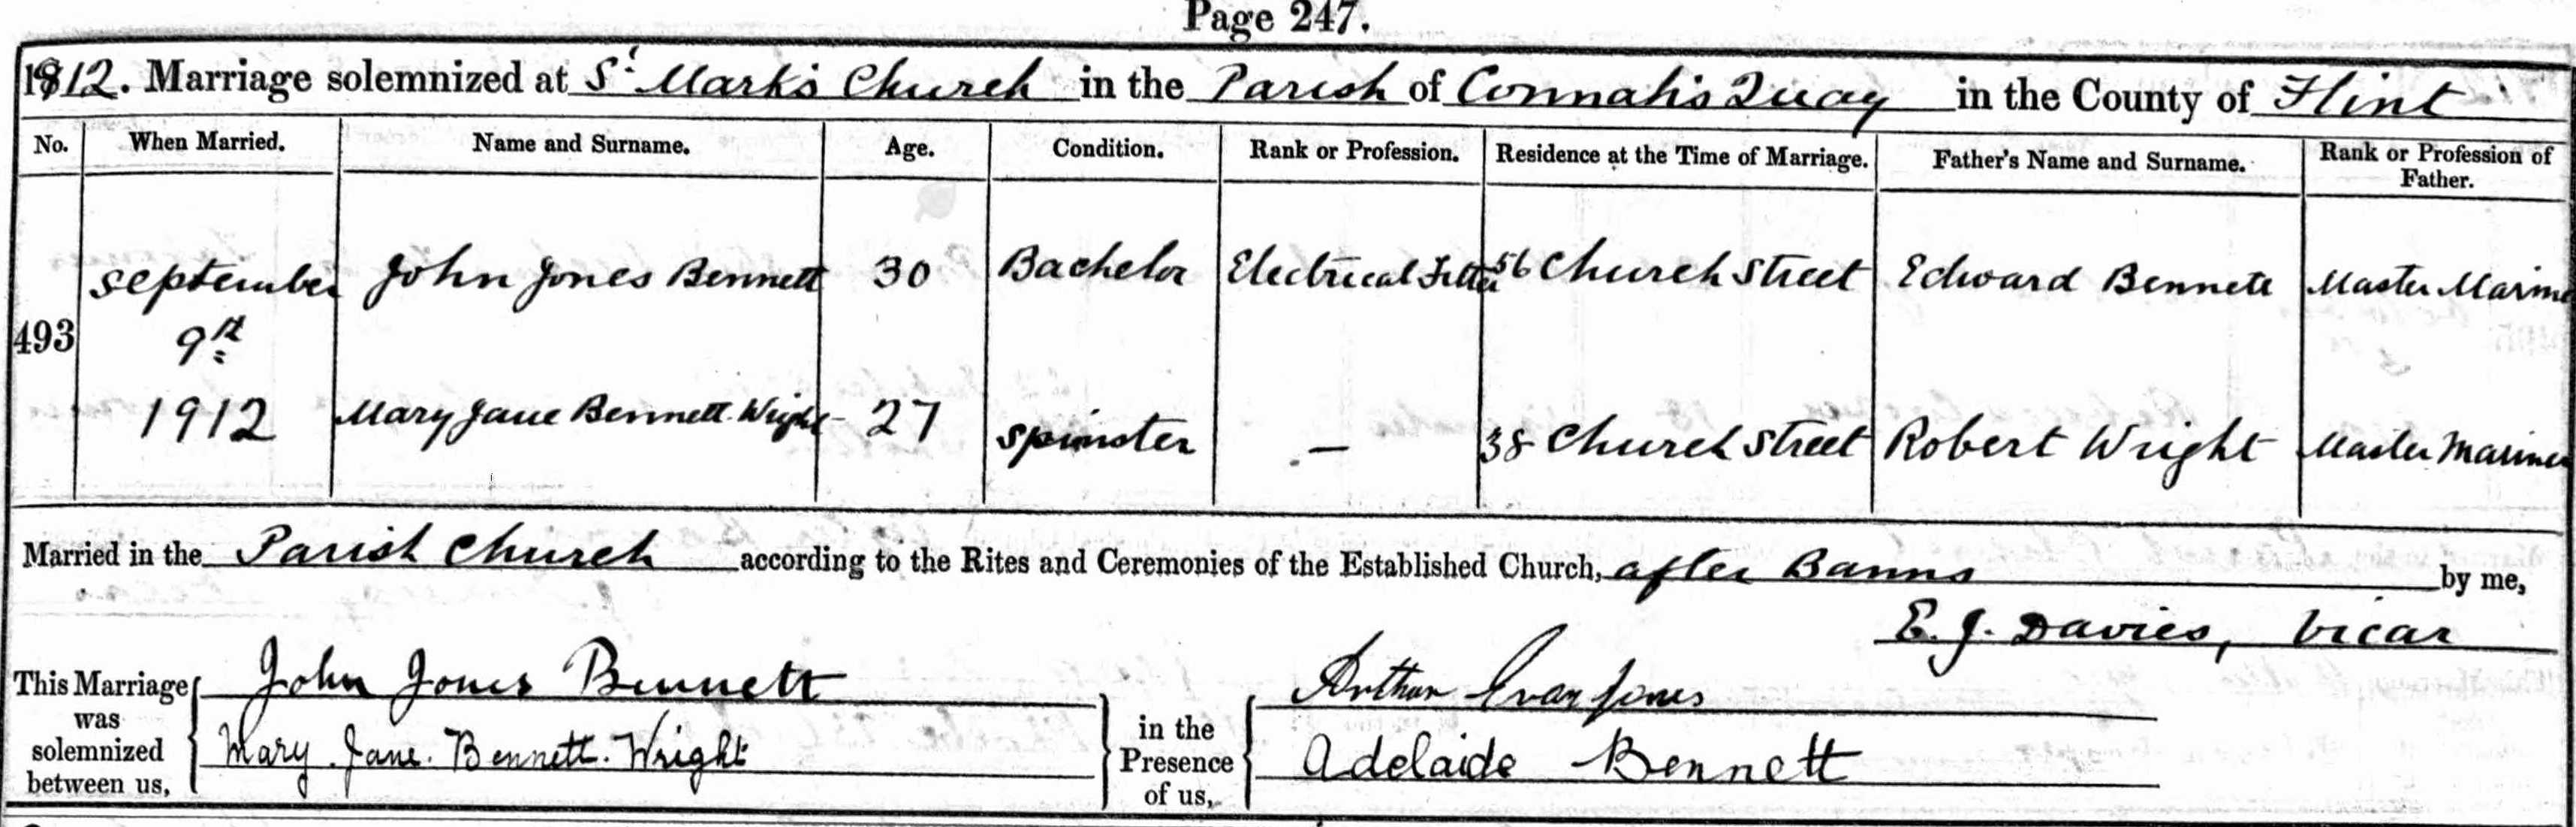 Page 247.
1912. Marriage solemnized at St Mark's Church in the Parish of Connah's Quay in the County of Flint
No. When Married. Name and Surname. Age. Condition. Rank or Profession. Residence at the Time of Marriage. Father's Name and Surname. Rank or Profession of Father.
September John Jones Bennett 30 Bachelor Electrical Fitter 56 Church Street Edward Bennett Master Marine
493 9th
1912 Mary Jane Bennett Wright 27 Spinster — 38 Church Street Robert Wright Master Mariner
Married in the Parish Church according to the Rites and Ceremonies of the Established Church, after Banns by me,
E. J. Davies, Vicar
This Marriage was solemnized between us,
John Jones Bennett
Mary. Jane. Bennett. Wright
in the Presence of us,
Arthur Evan Jones
Adelaide Bennett